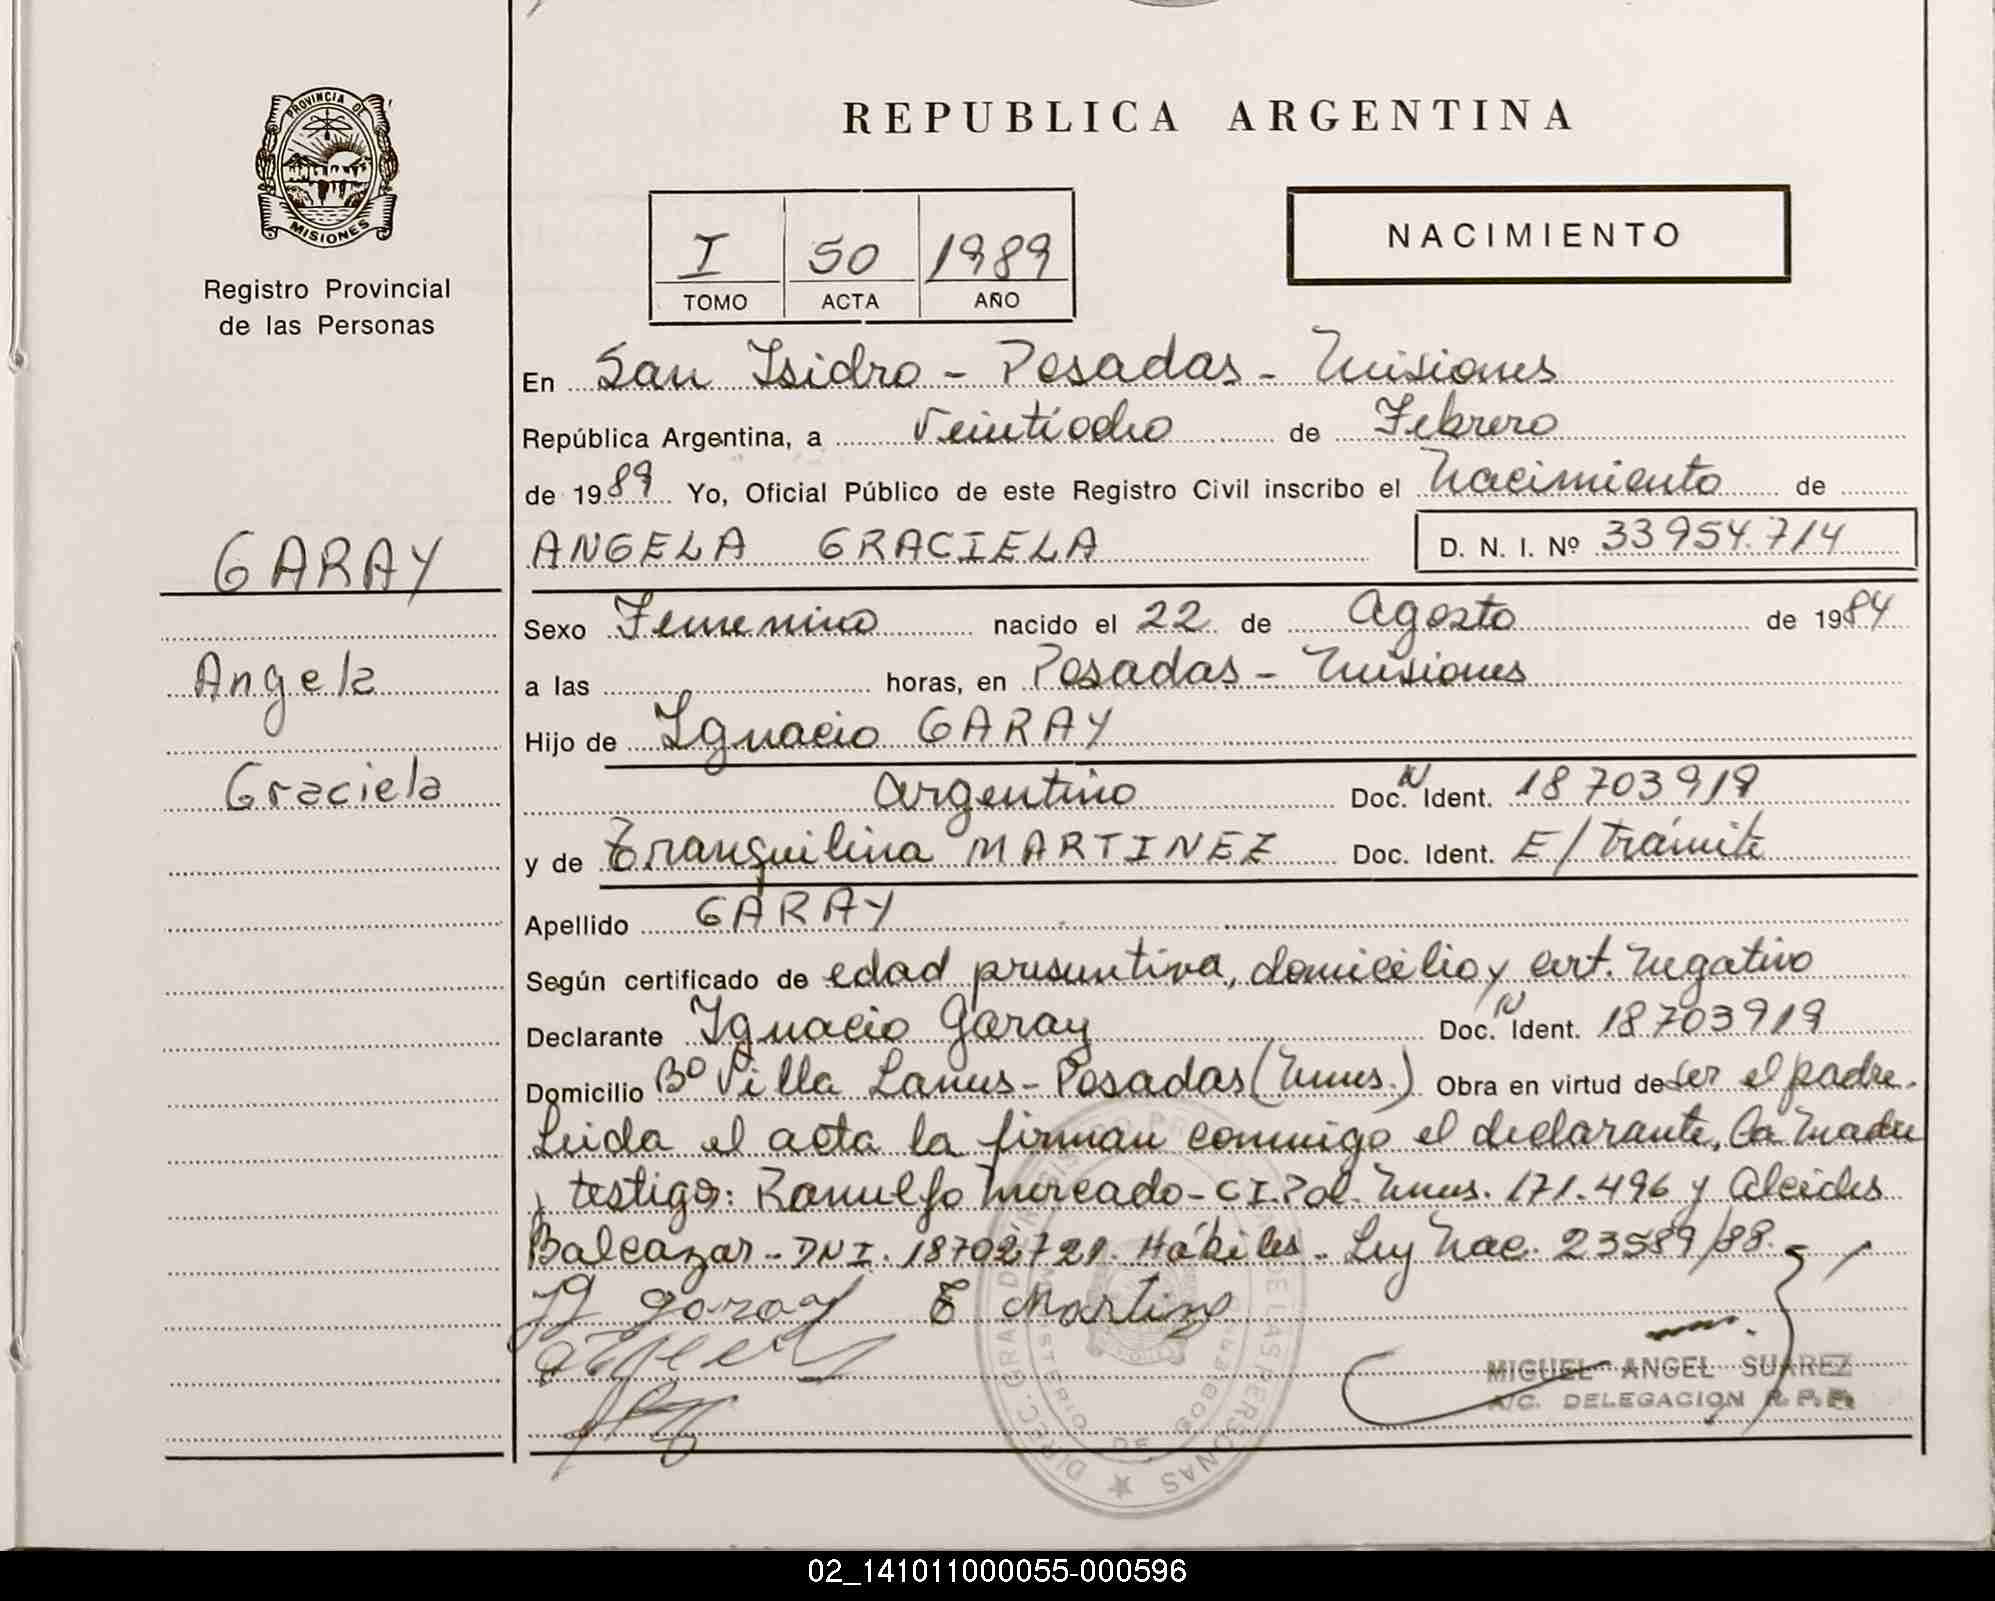 REPUBLICA ARGENTINA
PROVINCIA DE
MISIONES
Registro Provincial
de las Personas
I 50 1989
TOMO ACTA AÑO
NACIMIENTO
En San Isidro - Posadas - Misiones
República Argentina, a Veintiocho de Febrero
de 1989 Yo, Oficial Público de este Registro Civil inscribo el Nacimiento de
GARAY
ANGELA GRACIELA D. N. I. Nº 33954.714
Sexo Femenino nacido el 22 de Agosto de 1984
Angela
a las horas, en Posadas - Misiones
Hijo de Ignacio GARAY
Graciela
Argentino Doc. N Ident. 18703919
y de Tranquilina MARTINEZ Doc. Ident. E/trámite
Apellido GARAY
Según certificado de edad presuntiva, domicilio y cert. Negativo
Declarante Ignacio Garay Doc. N Ident. 18703919
Domicilio Bº Villa Lanus - Posadas (Mnes.) Obra en virtud de ser el padre.
Leida el acta la firman conmigo el declarante, la Madre
y testigos: Ranulfo Mercado - C.I. Pol. Mnes. 171.496 y Alcides
Balcazar - DNI. 18702721. Hábiles - Ley Nac. 23589/88.
Ig garay T Martinz
MIGUEL ANGEL SUAREZ
A/C. DELEGACION R. P. P.
DIREC. GRAL. DEL REGISTRO PROVINCIAL DE LAS PERSONAS
MINISTERIO DE GOBIERNO
02_141011000055-000596